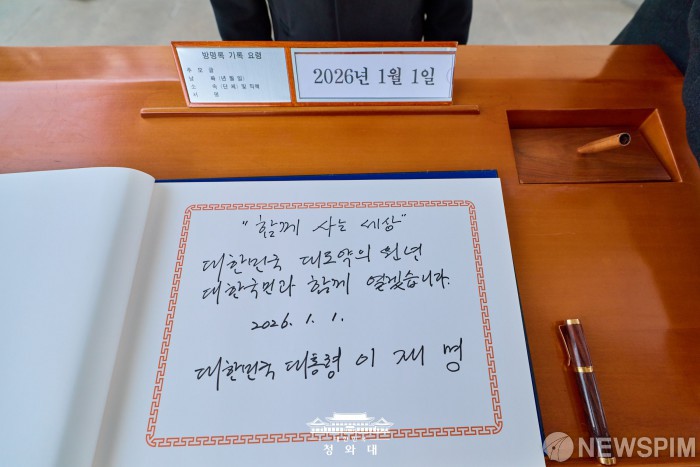 방명록 기록 요령
추 모 글
날 짜 (년 월 일)
소 속 (단 체) 및 직책
서 명
2026년 1월 1일
"함께 사는 세상"
대한민국 대도약의 원년
대한국민과 함께 열겠습니다.
2026. 1. 1.
대한민국 대통령 이 재 명
청와대
NEWSPIM